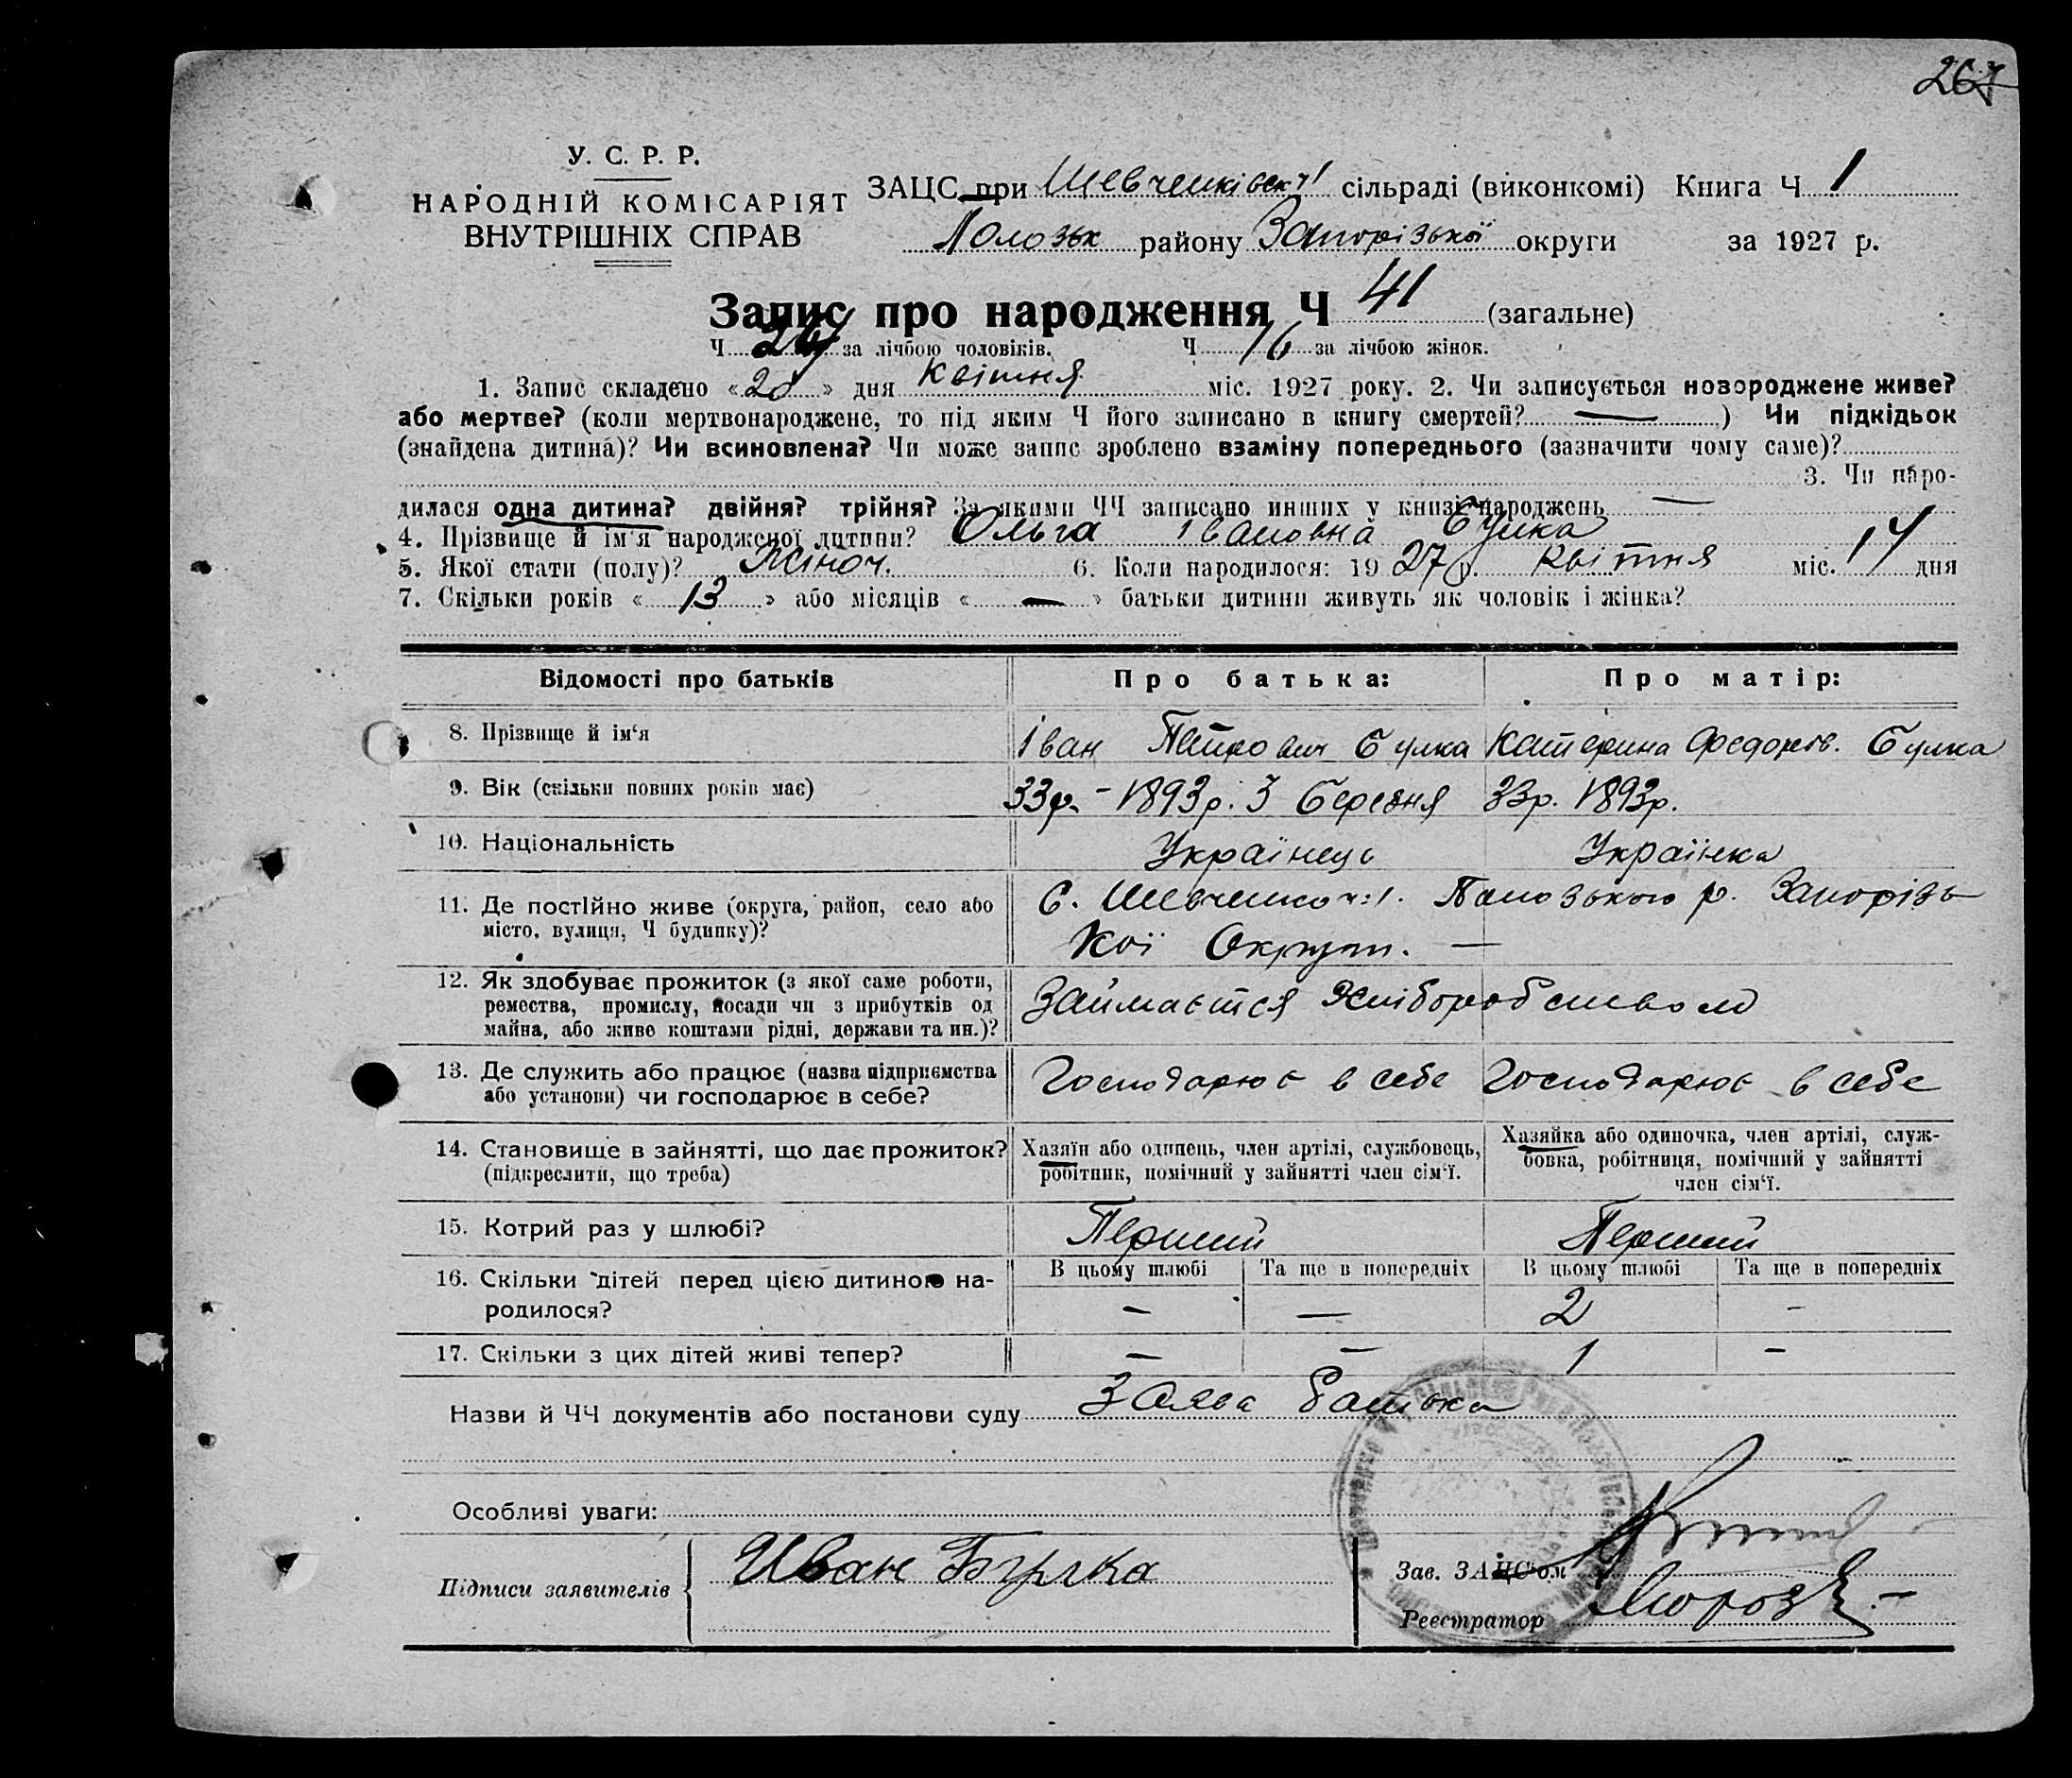 267
У. С. Р. Р.
НАРОДНІЙ КОМІСАРІЯТ
ВНУТРІШНІХ СПРАВ
ЗАЦС при Шевченківск ч1 сільраді (виконкомі) Книга Ч 1
Полозьк району Запорізької округи за 1927 р.
Запис про народження Ч 41 (загальне)
Ч за лічбою чоловіків. Ч 16 за лічбою жінок.
1. Запис складено « 20 » дня квітня міс. 1927 року. 2. Чи записується новороджене живе?
або мертве? (коли мертвонароджене, то під яким Ч його записано в книгу смертей? — ) Чи підкідьок
(знайдена дитина)? Чи всиновлена? Чи може запис зроблено взаміну попереднього (зазначити чому саме)?
3. Чи наро-
дилася одна дитина? двійня? трійня? За якими ЧЧ записано инших у книзі народжень —
4. Прізвище й ім'я народженої дитини? Ольга Івановна Булка
5. Якої стати (полу)? Жіноч. 6. Коли народилося: 19 27 р. квітня міс. 14 дня
7. Скільки років « 13 » або місяців « — » батьки дитини живуть як чоловік і жінка?
Відомості про батьків Про батька: Про матір:
8. Прізвище й ім‘я Іван Петрович Булка Катерина Федорів. Булка
9. Вік (скільки повних років має) 33р. – 1893р. 3 березня 33р. 1893р.
10. Національність Українець Українка
11. Де постійно живе (округа, район, село або
місто, вулиця, Ч будинку)?
С. Шевченко ч:1. Полозького р. Запорізь
кої Округи. —
12. Як здобуває прожиток (з якої саме роботи,
ремества, промислу, посади чи з прибутків од
майна, або живе коштами рідні, держави та ин.)?
Займається Хліборобством
13. Де служить або працює (назва підприємства
або установи) чи господарює в себе?
Господарює в себе Господарює в себе
14. Становище в зайнятті, що дає прожиток?
(підкреслити, що треба)
Хазяїн або одинець, член артілі, службовець,
робітник, помічний у зайнятті член сім‘ї.
Хазяйка або одиночка, член артілі, служ-
бовка, робітниця, помічний у зайнятті
член сім‘ї.
15. Котрий раз у шлюбі? Перший Перший
16. Скільки дітей перед цією дитиною на-
родилося?
В цьому шлюбі Та ще в попередніх В цьому шлюбі Та ще в попередніх
— — 2 –
17. Скільки з цих дітей живі тепер? — — 1 –
Назви й ЧЧ документів або постанови суду Заява батька
Особливі уваги:
Підписи заявителів Иван Булка
Зав. ЗАЦС‘ом
Реєстратор Мороз